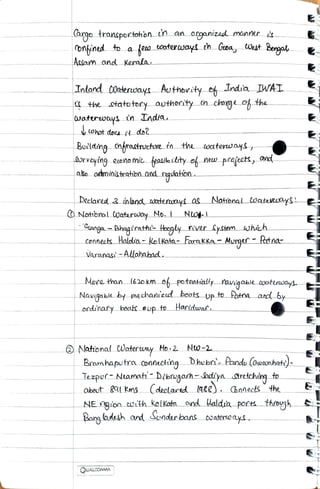 Cargo transportation in an organized manner is
confined to a few waterways in Goa, West Bengal
Assam and Kerala.
Inland Waterways Authority of India IWAI
is the statutory authority in charge of the
waterways in India.
↓ what does it do?
Building infrastructure in the waterways,
surveying economic feasibility of new projects, and
also administration and regulation.
Declared 3 inland waterways as National Waterways:
① National Waterway No. 1 NW-1
Ganga - Bhagirathi - Hoogly river System which
connects Haldia - Kolkata - Farakka - Munger - Patna -
Varanasi - Allahabad.
More than 1620km of potentially navigable waterways.
Navigable by mechanized boats up to Patna and by
ordinary boats up to Haridwar.
② National Waterway No. 2 NW-2
Bramhaputra connecting Dhubri - Pandu (Guwahati) -
Tezpur - Neamati - Dibrugarh - Sadiya stretching to
about 891 kms (declared 1988). Connects the
NE region with Kolkata and Haldia ports through
Bangladesh and Sunderbans waterways.